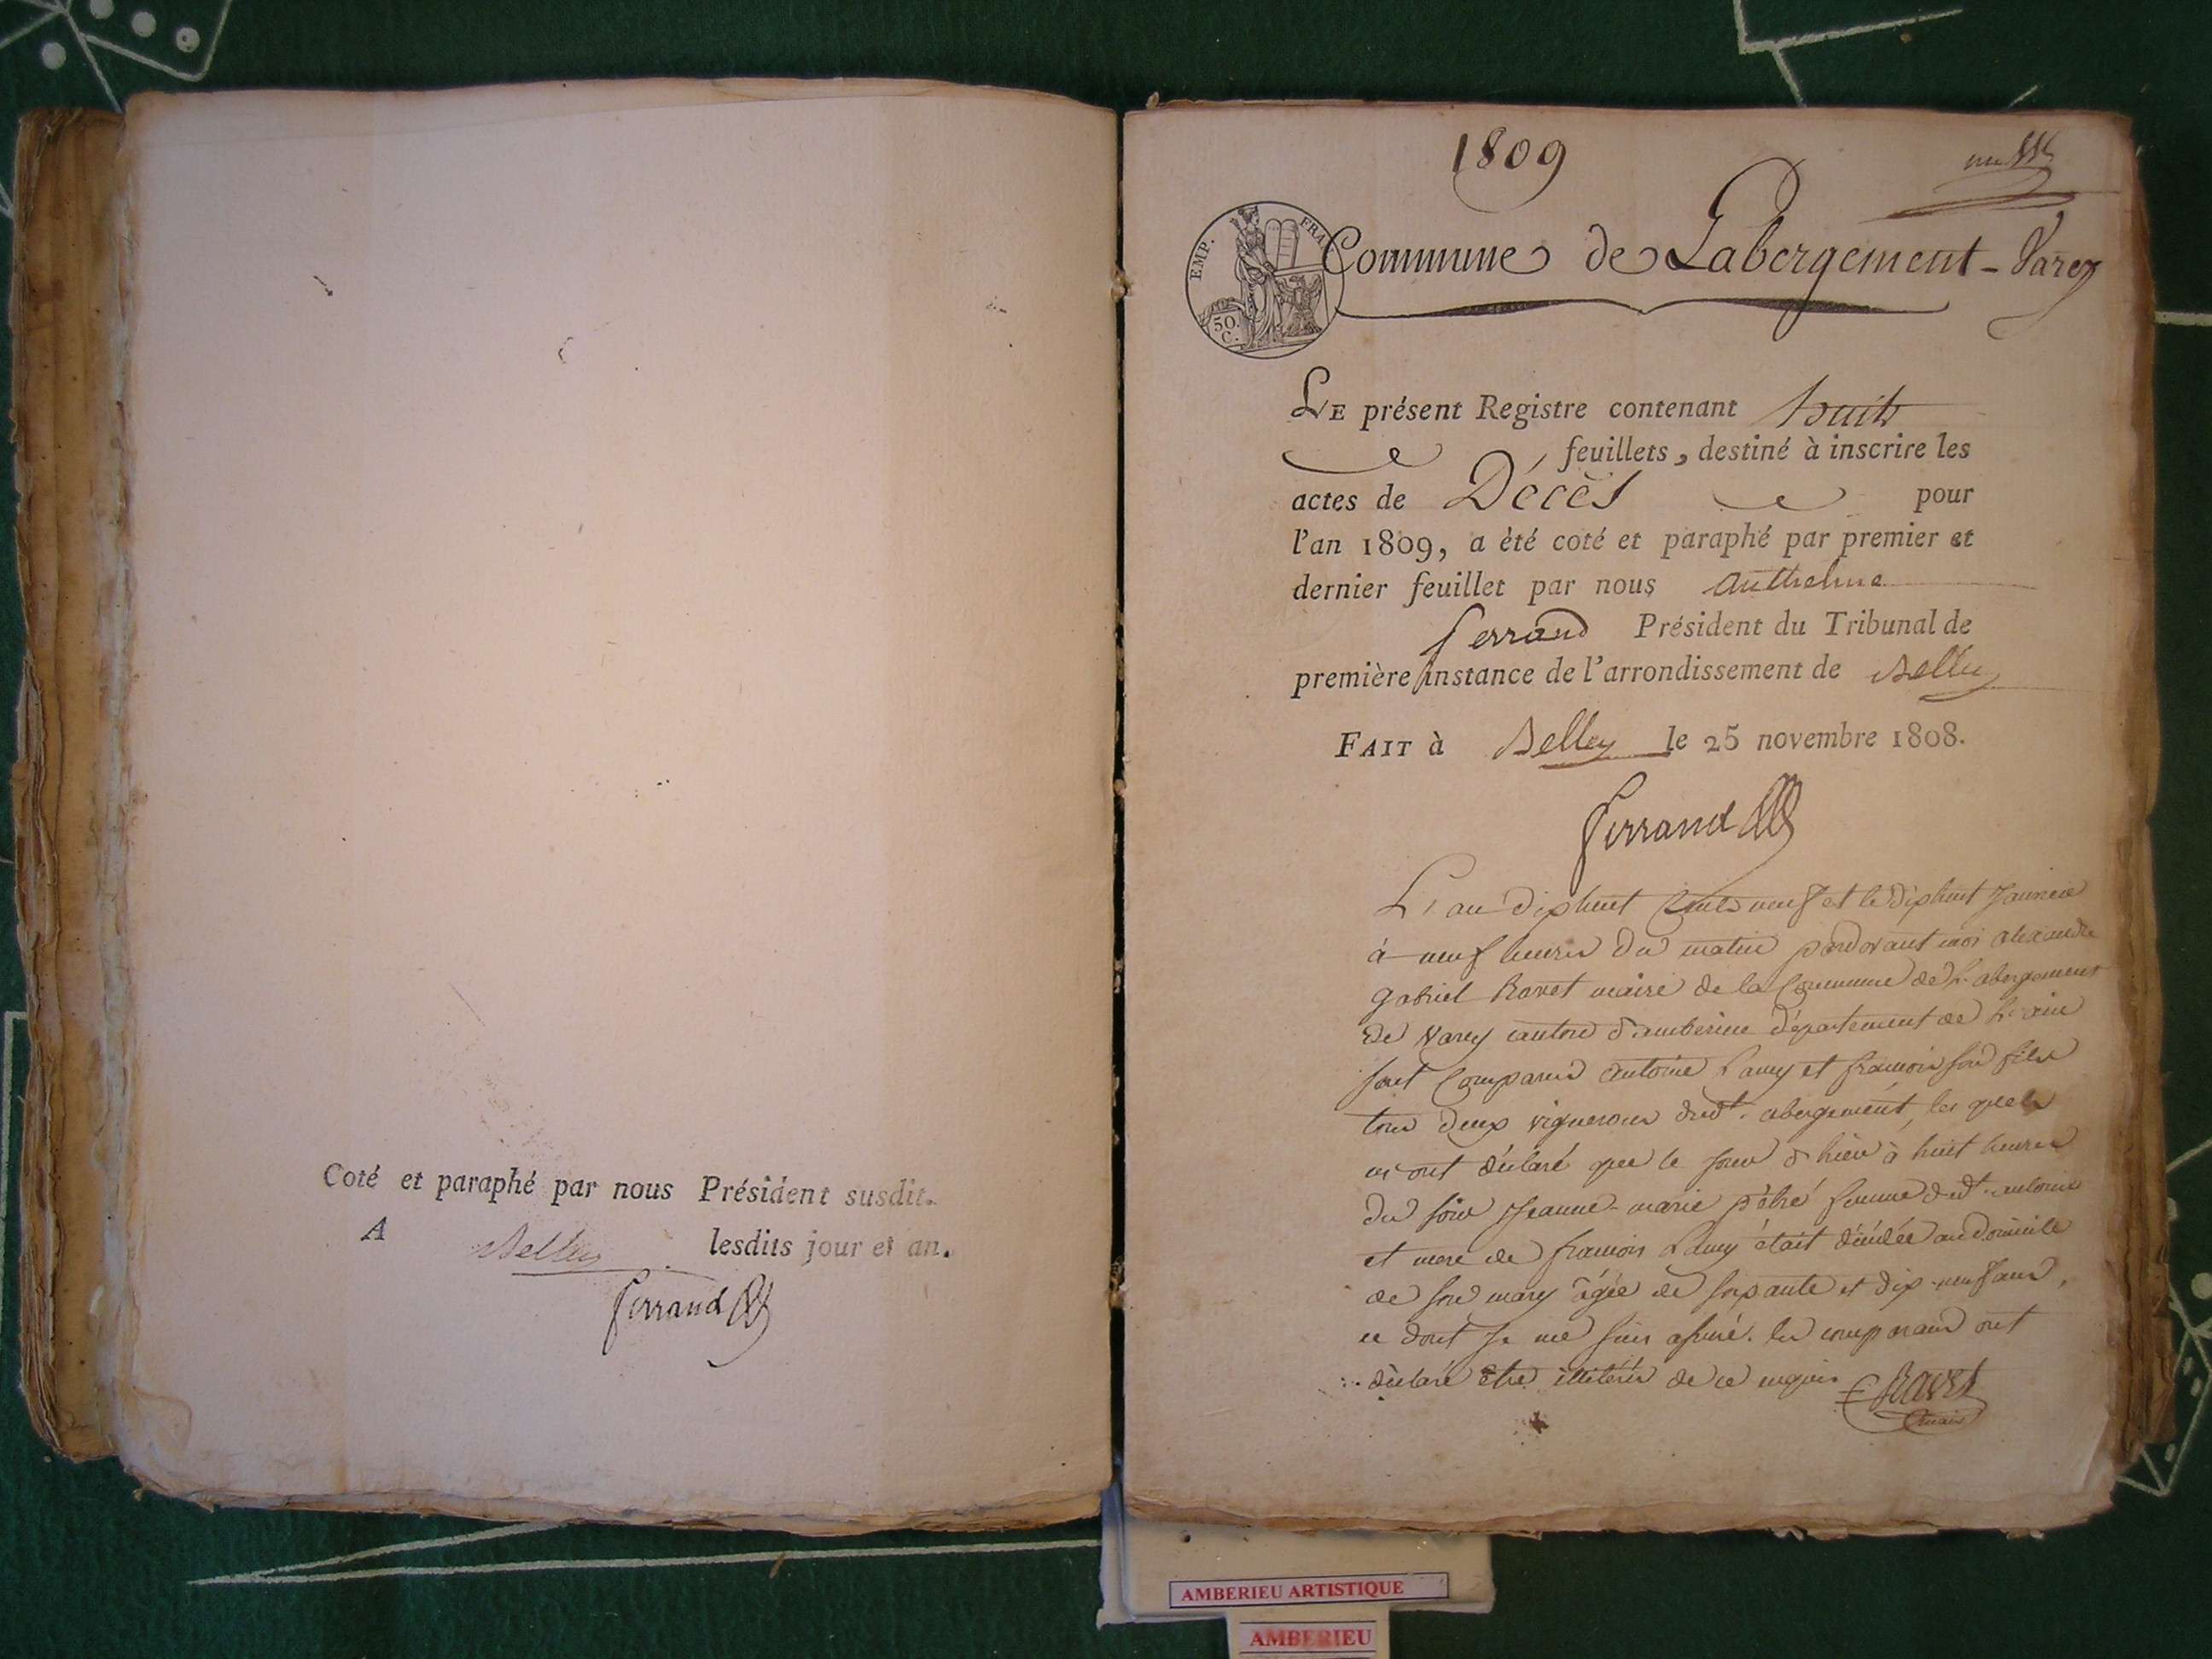 Coté et paraphé par nous Président susdit.
A Belley lesdits jour et an.
Ferrand
1809
EMP. FRA
50.
C.
Commune de Labergement-Varey
LE présent Registre contenant huit
feuillets, destiné à inscrire les
actes de Décès pour
l'an 1809, a été coté et paraphé par premier et
dernier feuillet par nous Anthelme
ferrand Président du Tribunal de
première instance de l'arrondissement de Belley
FAIT à Belley le 25 novembre 1808.
ferrand
L'an diphuit Cents neuf et le diphuit Janvier
à neuf heures du matin pardevant moi alexandre
gabriel Ravet maire de la Commune de L'abergement
de Varey canton d'amberieu département de L'ain
sont Comparus antoine Lamy et francois son fils
tous deux vignerons dud.t abergement, les quels
m'ont déclaré que le jour d'hier à huit heures
du soir Jeanne-marie femme dud.t antoine
et mere de francois Lamy était décédée au domicile
de son mary âgée de soixante et dix-neuf ans,
ce dont je me suis assuré. les comparans ont
déclaré être illitérés de ce requis
Ravet
maire
AMBERIEU ARTISTIQUE
AMBERIEU